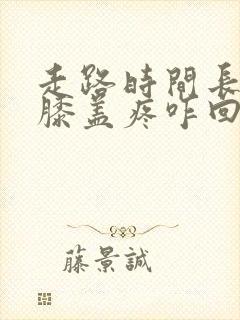 走路時間長
膝盖疼咋回
藤景誠